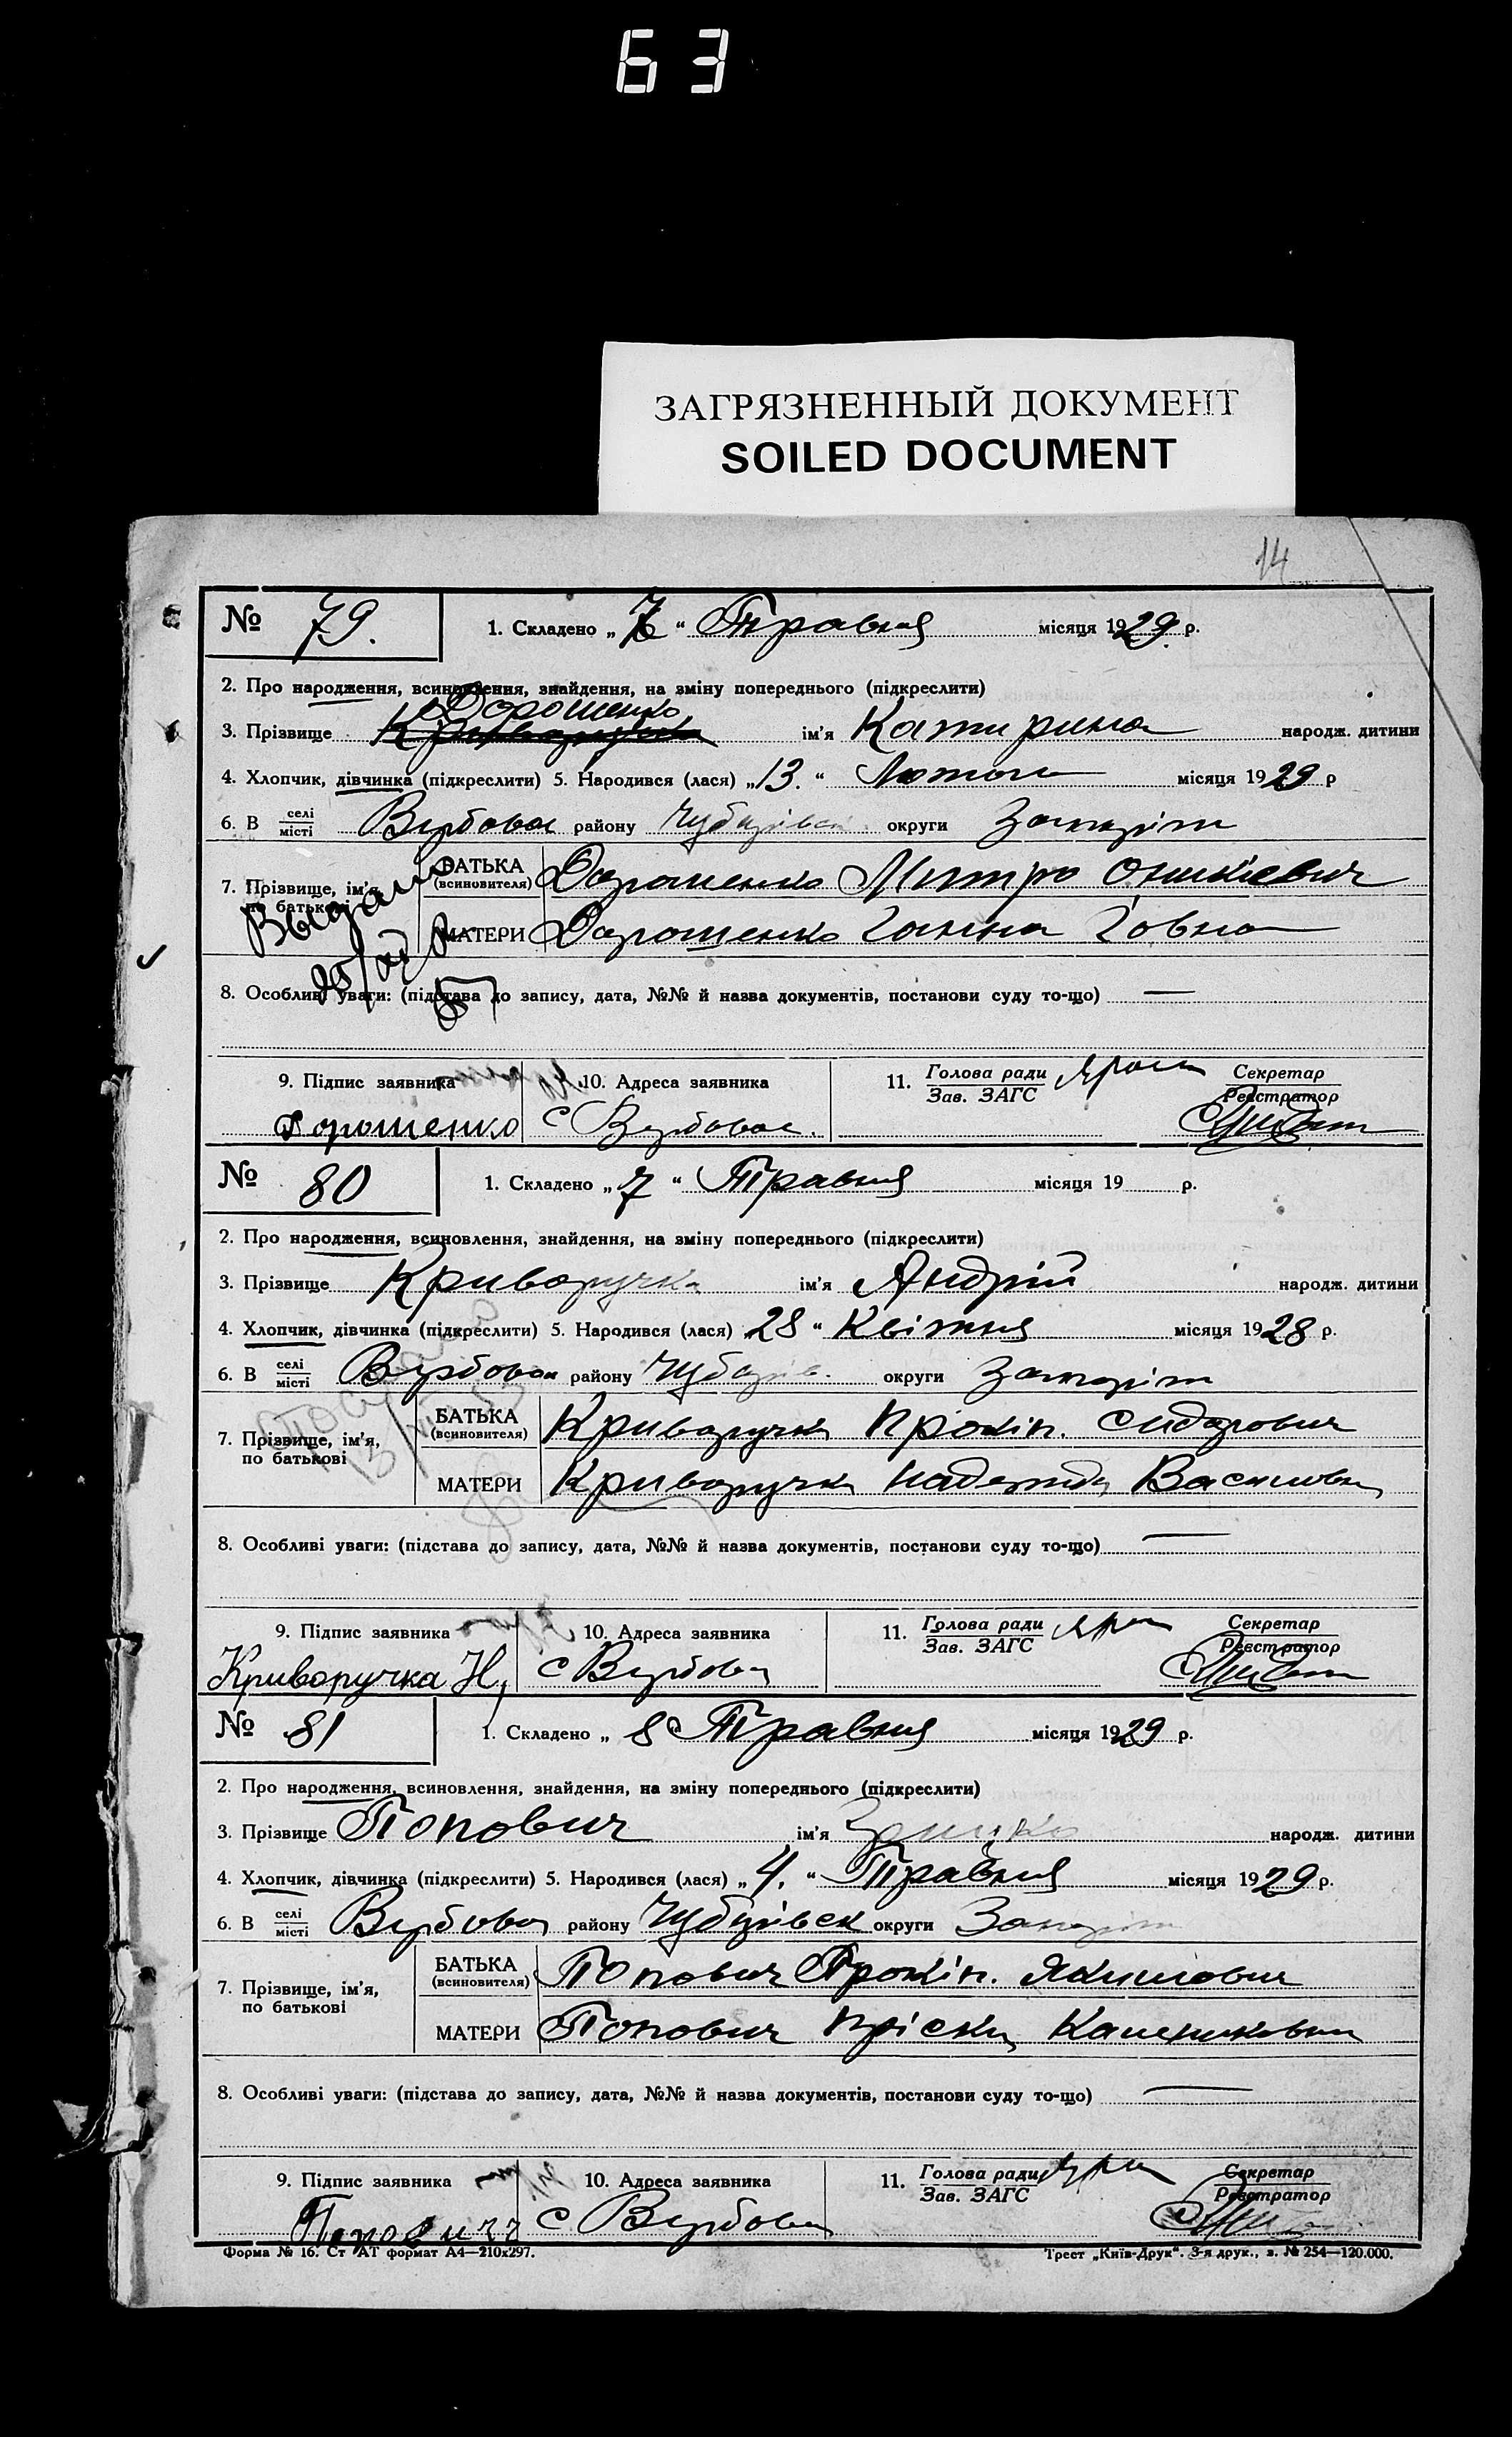 63
ЗАГРЯЗНЕННЫЙ ДОКУМЕНТ
SOILED DOCUMENT
14
№ 79. 1. Складено „ 7 “ Травня місяця 1929. р.
2. Про народження, всиновлення, знайдення, на зміну попереднього (підкреслити)
Дорошенко
3. Прізвище Криворучка ім'я Катирина народж. дитини
4. Хлопчик, дівчинка (підкреслити) 5. Народився (лася) „ 13. “ Лютого місяця 1929 р
6. В селі/місті Вербовое району округи
7. Прізвище, ім'я, по батькові БАТЬКА (всиновителя) Дорошенко Митро
МАТЕРИ Дорошенко Ганна
8. Особливі уваги: (підстава до запису, дата, №№ й назва документів, постанови суду то-що) —
9. Підпис заявника 10. Адреса заявника 11. Голова ради/Зав. ЗАГС Секретар/Реєстратор
Дорошенко с Вербовое.
№ 80 1. Складено „ 7 “ Травня місяця 19 р.
2. Про народження, всиновлення, знайдення, на зміну попереднього (підкреслити)
3. Прізвище Криворучка ім'я Андрій народж. дитини
4. Хлопчик, дівчинка (підкреслити) 5. Народився (лася) 28 “ Квітня місяця 1928 р.
6. В селі/місті Вербовое району округи
7. Прізвище, ім'я, по батькові БАТЬКА (всиновителя) Криворучка Прокіп. Сидорович
МАТЕРИ Криворучка Надежда
8. Особливі уваги: (підстава до запису, дата, №№ й назва документів, постанови суду то-що) —
9. Підпис заявника 10. Адреса заявника 11. Голова ради/Зав. ЗАГС Секретар/Реєстратор
Криворучка Н, с Вербова
№ 81 1. Складено „ 8 “ Травня місяця 1929 р.
2. Про народження, всиновлення, знайдення, на зміну попереднього (підкреслити)
3. Прізвище Попович ім'я народж. дитини
4. Хлопчик, дівчинка (підкреслити) 5. Народився (лася) „ 4. “ Травня місяця 1929 р.
6. В селі/місті Вербова району округи
7. Прізвище, ім'я, по батькові БАТЬКА (всиновителя) Попович Прокіп. Якимович
МАТЕРИ Попович Пріська
8. Особливі уваги: (підстава до запису, дата, №№ й назва документів, постанови суду то-що) —
9. Підпис заявника 10. Адреса заявника 11. Голова ради/Зав. ЗАГС Секретар/Реєстратор
Попович с Вербова
Форма № 16. Ст АТ формат А4—210х297. Трест „Київ-Друк“. 3-я друк., з. № 254—120.000.